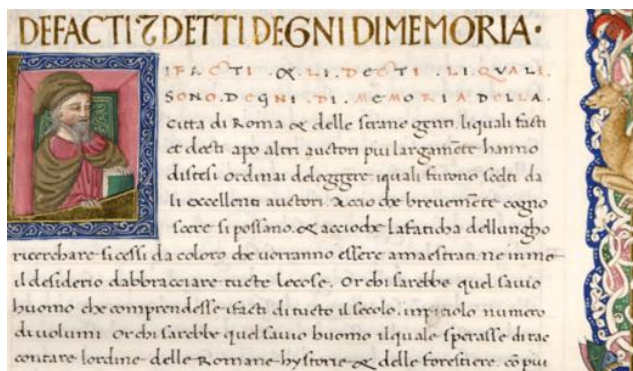 DEFACTI & DETTI DEGNI DIMEMORIA·
IFACTI · & · LI · DECTI · LI · QVALI ·
SONO · DEGNI · DI · MEMORIA DELLA ·
citta di Roma & delle strane genti, liquali facti
et decti apo altri auctori piu largamēte hanno
distesi ordinai deleggere iquali furono scelti da
li excellenti auctori. Accio che brevemēte cogno
scere si possano. & accioche lafaticha dellungho
ricerchare si cessi da coloro che vorranno essere amaestrati ne in me
il desiderio dabbracciare tucte lecose. Or chi sarebbe quel savio
huomo che comprendesse ifacti di tucto il secolo. in piciolo numero
di uolumi. Or chi sarebbe quel savio huomo ilquale sperasse di rac
contare lordine delle Romane hystorie & delle forestiere. cō piu